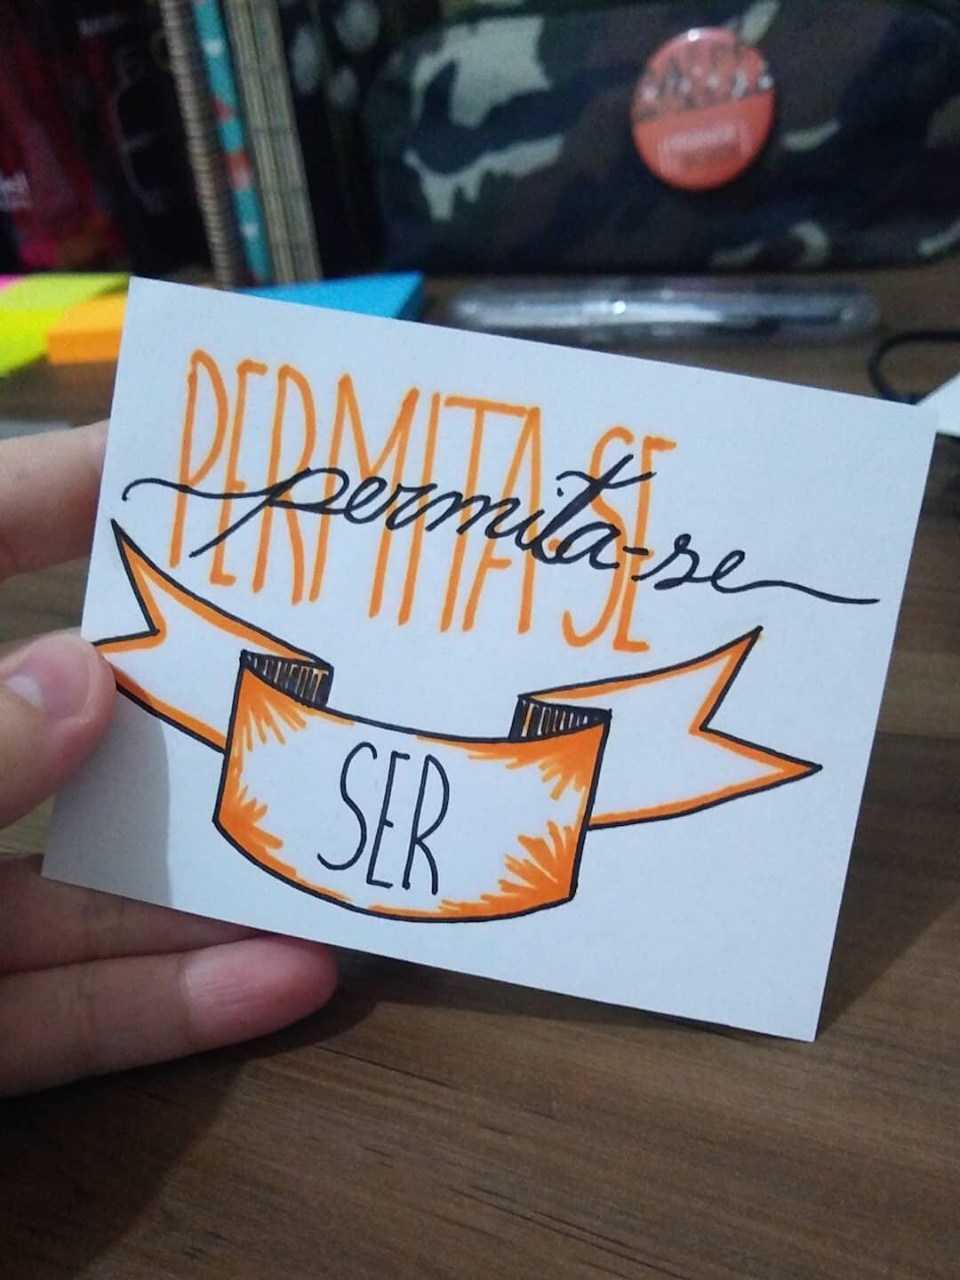 PERMITA SE
permita-se
SER